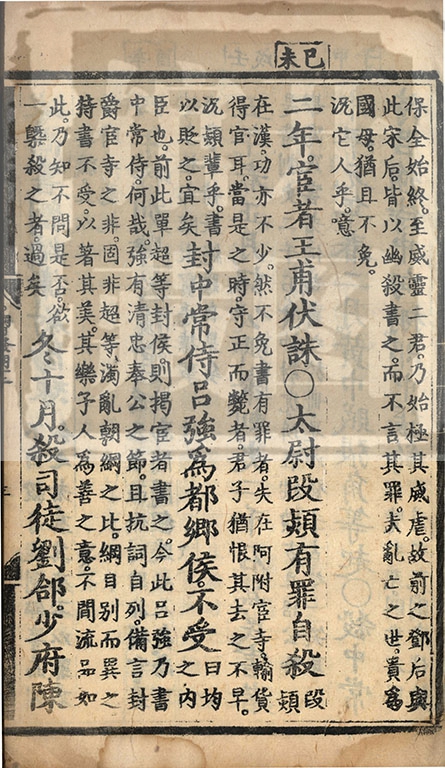 己未
保全始終。至威靈二君。乃始極其威虐。故前之鄧后與
此宋后。皆以幽殺書之。而不言其罪。夫亂亡之世。貴爲
國母。猶且不免。
况它人乎。噫
二年。宦者王甫伏誅○太尉段熲有罪自殺
段
熲
在漢。功亦不少。然不免書有罪者。失在阿附宦寺。輸貨
得官耳。當是之時。守正而斃者。君子猶恨其去之不早。
况熲輩乎。書
以貶之。宜矣
封中常侍呂強爲都鄉侯。不受
曰均
之內
臣也。前此單超等封侯。則揭宦者書之。今此呂強乃書
中常侍。何哉。強有清忠奉公之節。且抗詞自列。備言封
爵宦寺之非。固非超等濁亂朝綱之比。綱目别而異之
特書不受。以著其美。其樂予人爲善之意。不間流品如
此。乃知不問是否。欲
一槩殺之者。過矣
冬十月。殺司徒劉郃。少府陳